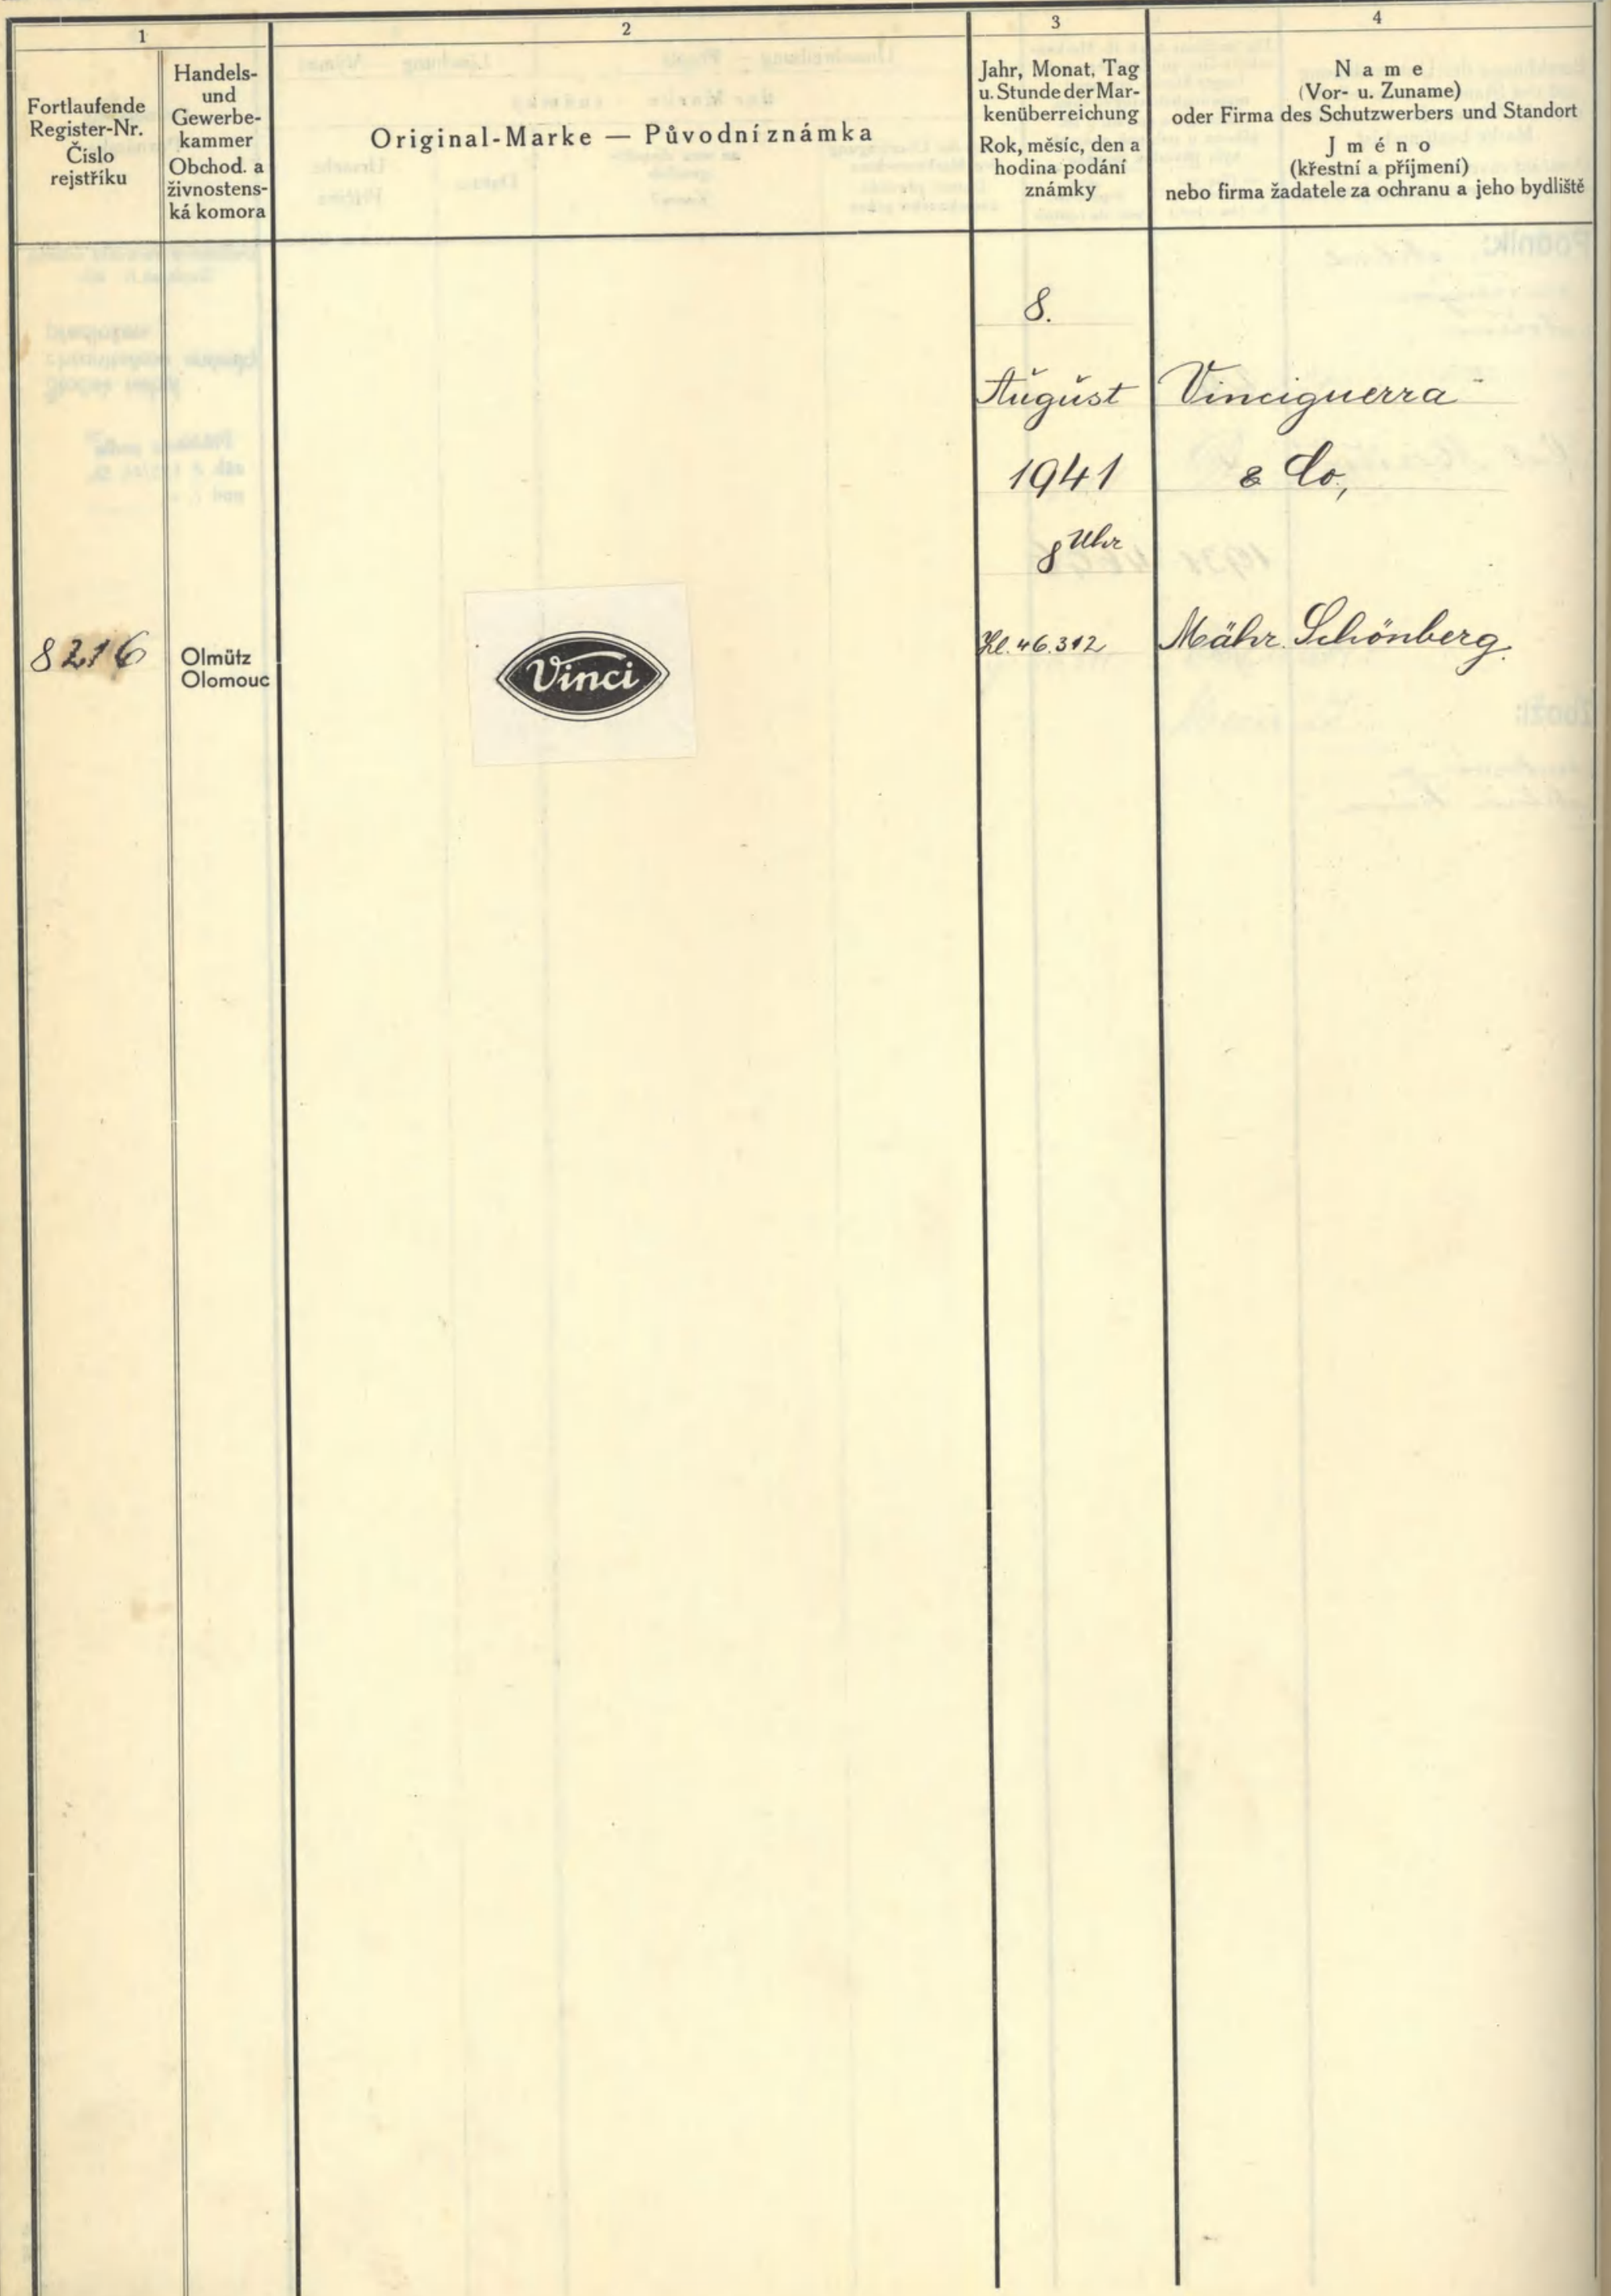 1
Fortlaufende
Register-Nr.
Číslo
rejstříku
Handels-
und
Gewerbe-
kammer
Obchod. a
živnostens-
ká komora
2
Original-Marke — Původní známka
3
Jahr, Monat, Tag
u. Stunde der Mar-
kenüberreichung
Rok, měsíc, den a
hodina podání
známky
4
Name
(Vor- u. Zuname)
oder Firma des Schutzwerbers und Standort
Jméno
(křestní a příjmení)
nebo firma žadatele za ochranu a jeho bydliště
8216
Olmütz
Olomouc
Vinci
8.
August
1941
8 Uhr
Kl. 46.312
Vinciguerra
& Co.,
Mähr. Schönberg.